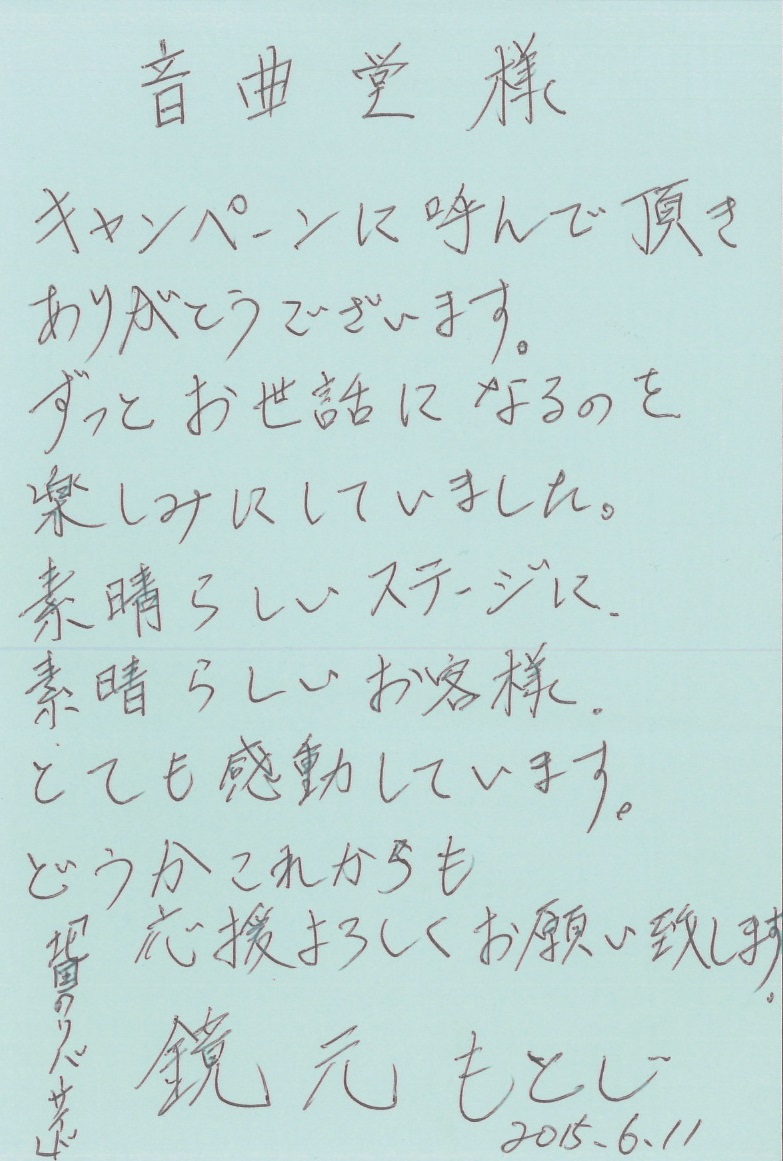 音曲堂様
キャンペーンに呼んで頂き
ありがとうございます。
ずっとお世話になるのを
楽しみにしていました。
素晴らしいステージに、
素晴らしいお客様、
とても感動しています。
どうかこれからも
応援よろしくお願い致します。
「北国のリバーサイド」
鏡元もとじ
2015.6.11